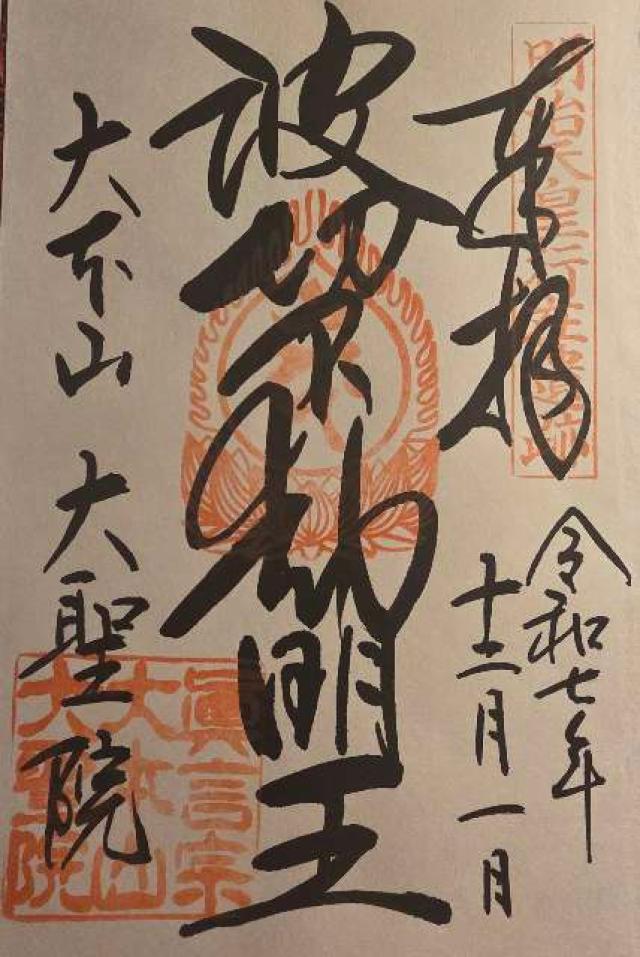 明治天皇
奉拝
令和七年
十二月一日
波切不動明王
大本山 大聖院
眞言宗
大本山
大聖院